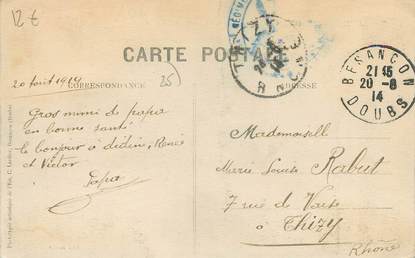 12€
CARTE POSTALE
CORRESPONDANCE
ADRESSE
20 août 1914
25
Gros mimi de papa
en bonne santé
le bonjour à didine, René
et Victor
Papa
THIZY
RHONE
BESANÇON
21 45
20 - 8
14
DOUBS
Mademoiselle
Marie Louise Rabut
7 rue de Vaise
à Thizy
Rhône